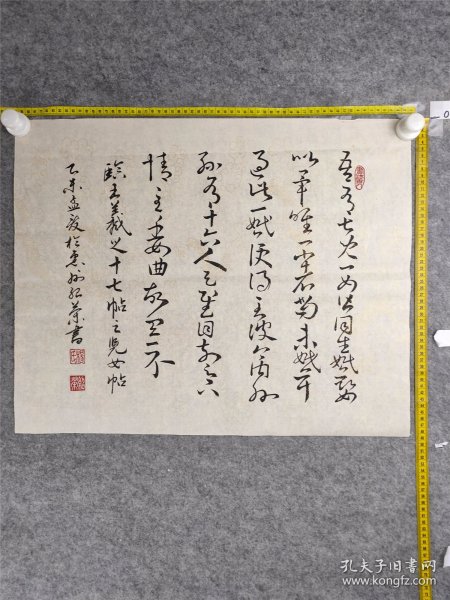 吾有七兒一女皆同生婚娶
以畢唯一小者尚未婚耳
過此一婚便得至彼今内外
孫有十六人足慰目前足下
情至委曲故具示
臨王羲之十七帖之兒女帖
乙未孟夏於惠州書
0
孔夫子旧书网
www.kongfz.com